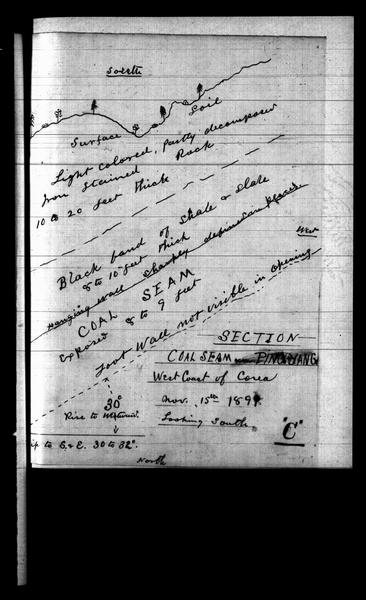 South
Soil
Surface
Light colored, partly decomposed
Iron Stained Rock
10 to 20 feet thick
Black band of Shale & Slate
8 to 10 feet thick
Hanging Wall Sharply defined in places
West
COAL SEAM
Exposed 8 to 9 feet
Foot Wall not visible in opening
SECTION
COAL SEAM PING YANG
West Coast of Corea
Nov. 15th 189
Looking South
"C"
30°
Rise to
to S. & E. 30 to 32°.
North